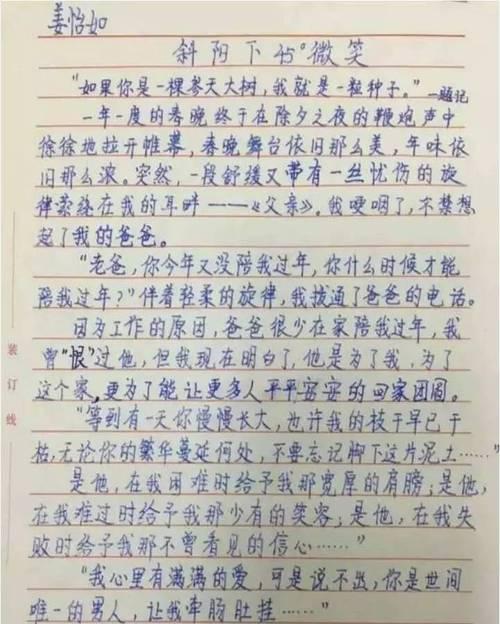 姜怡如
斜阳下45°微笑
“如果你是一棵参天大树，我就是一粒种子。”—题记
一年一度的春晚终于在除夕之夜的鞭炮声中
徐徐地拉开帷幕，春晚舞台依旧那么美，年味依
旧那么浓。突然，一段舒缓又带有一丝忧伤的旋
律萦绕在我的耳畔——《父亲》。我哽咽了，不禁想
起了我的爸爸。
“老爸，你今年又没陪我过年，你什么时候才能
陪我过年？”伴着轻柔的旋律，我拨通了爸爸的电话。
因为工作的原因，爸爸很少在家陪我过年，我
曾“恨”过他，但我现在明白了，他是为了我，为了
这个家，更为了能让更多人平平安安的回家团圆。
“等到有一天你慢慢长大，也许我的枝干早已干
枯，无论你的繁华蔓延何处，不要忘记脚下这片泥土……”
是他，在我困难时给予我那宽厚的肩膀；是他，
在我难过时给予我那少有的笑容；是他，在我失
败时给予我那不曾看见的信心……”
“我心里有满满的爱，可是说不出，你是世间
唯一的男人，让我牵肠肚挂……”
装订线